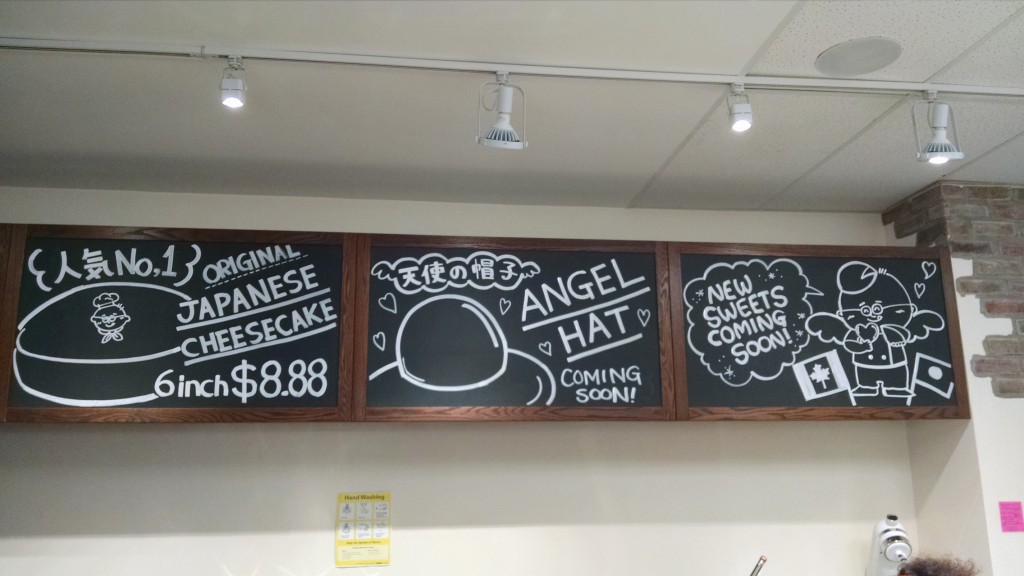 人気No,1
ORIGINAL
JAPANESE
CHEESECAKE
6inch $8.88
天使の帽子
ANGEL
HAT
COMING
SOON!
NEW
SWEETS
COMING
SOON!
Hand Washing